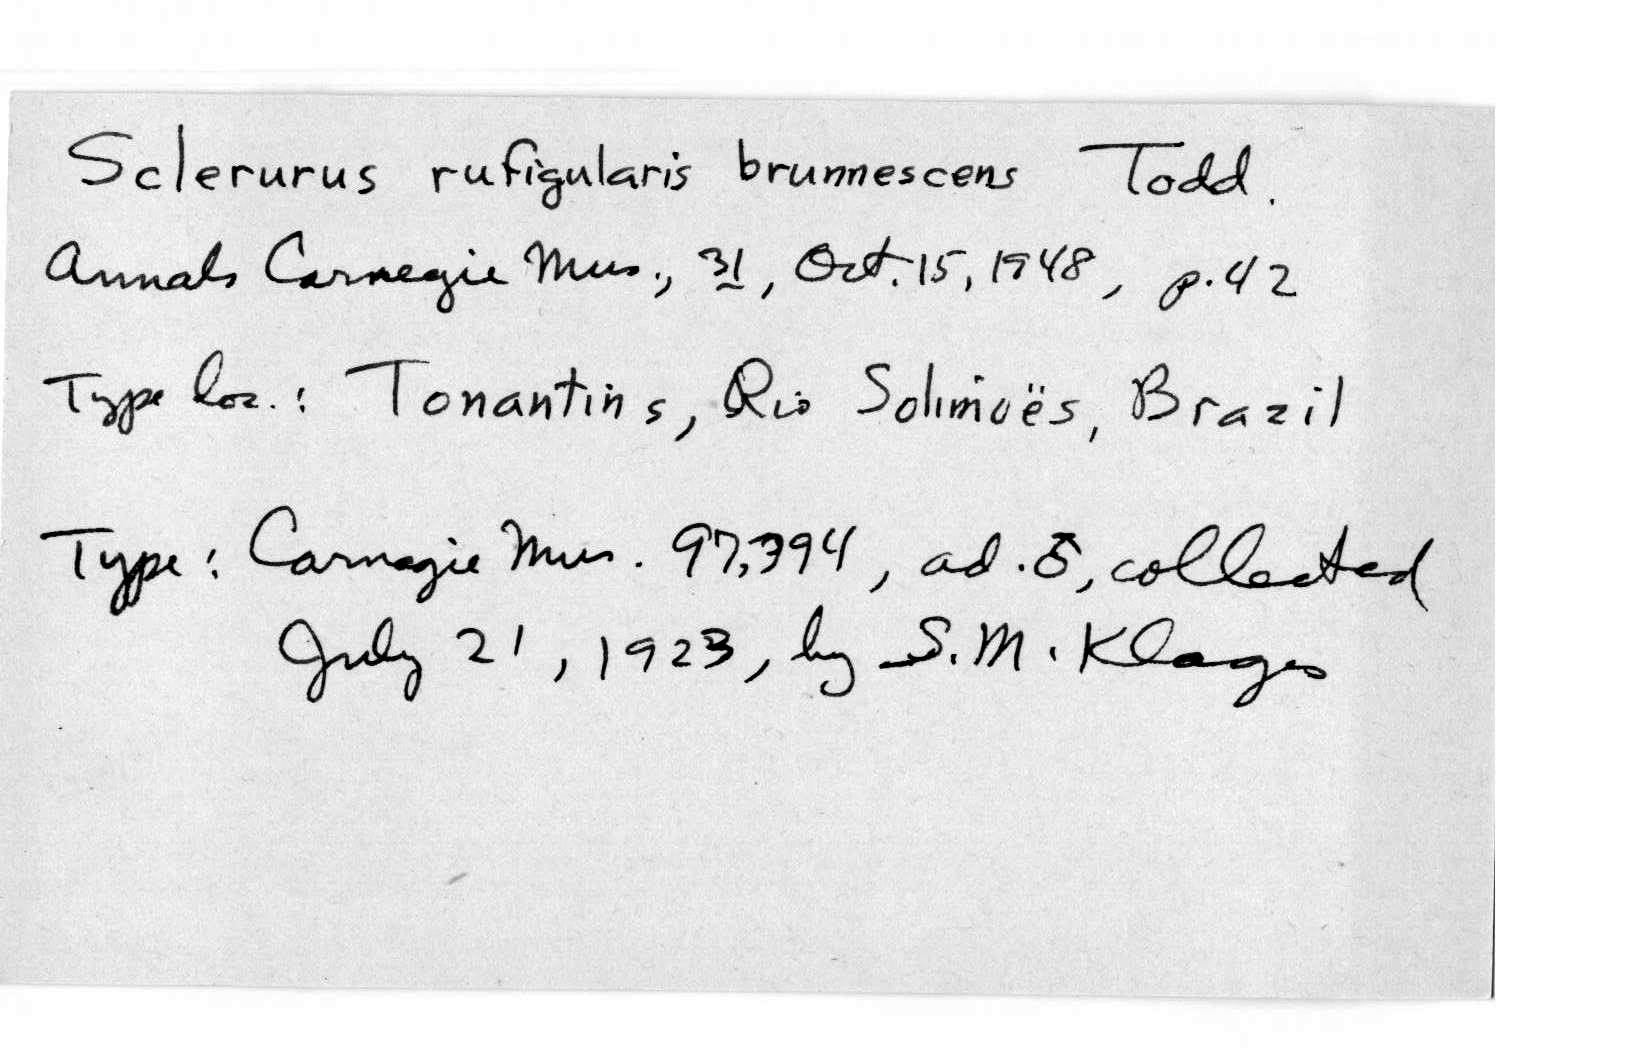 Sclerurus rufigularis brunnescens Todd.
Annals Carnegie Mus., 31, Oct. 15, 1948, p. 42
Type loc.: Tonantins, Rio Solimoës, Brazil
Type: Carnegie Mus. 97,394, ad. ♂, collected
July 21, 1923, by S. M. Klages